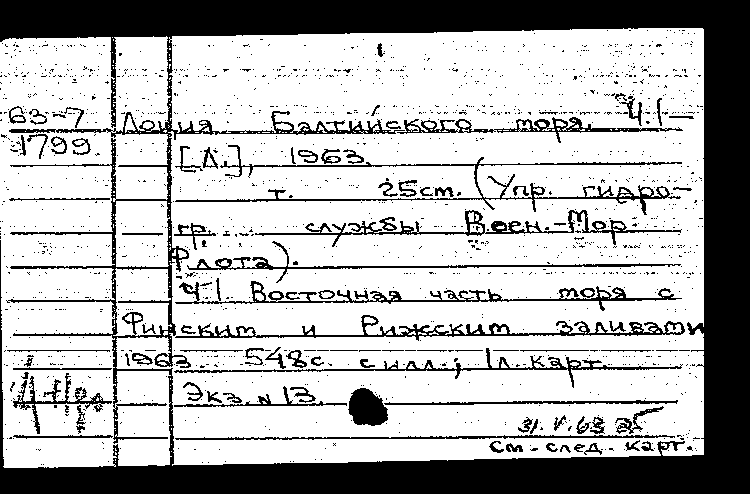 63-7 Лоция Балтийского моря. Ч.1—
1799 [Л.], 1963.
т. 25см. (Упр. гидро-
гр. службы Воен.-Мор.
Флота).
Ч 1 Восточная часть моря с
Финским и Рижским заливами
1963. 548с. с илл.; 1л. карт.
Экз. N 13.
31.V.63
См. след. карт.